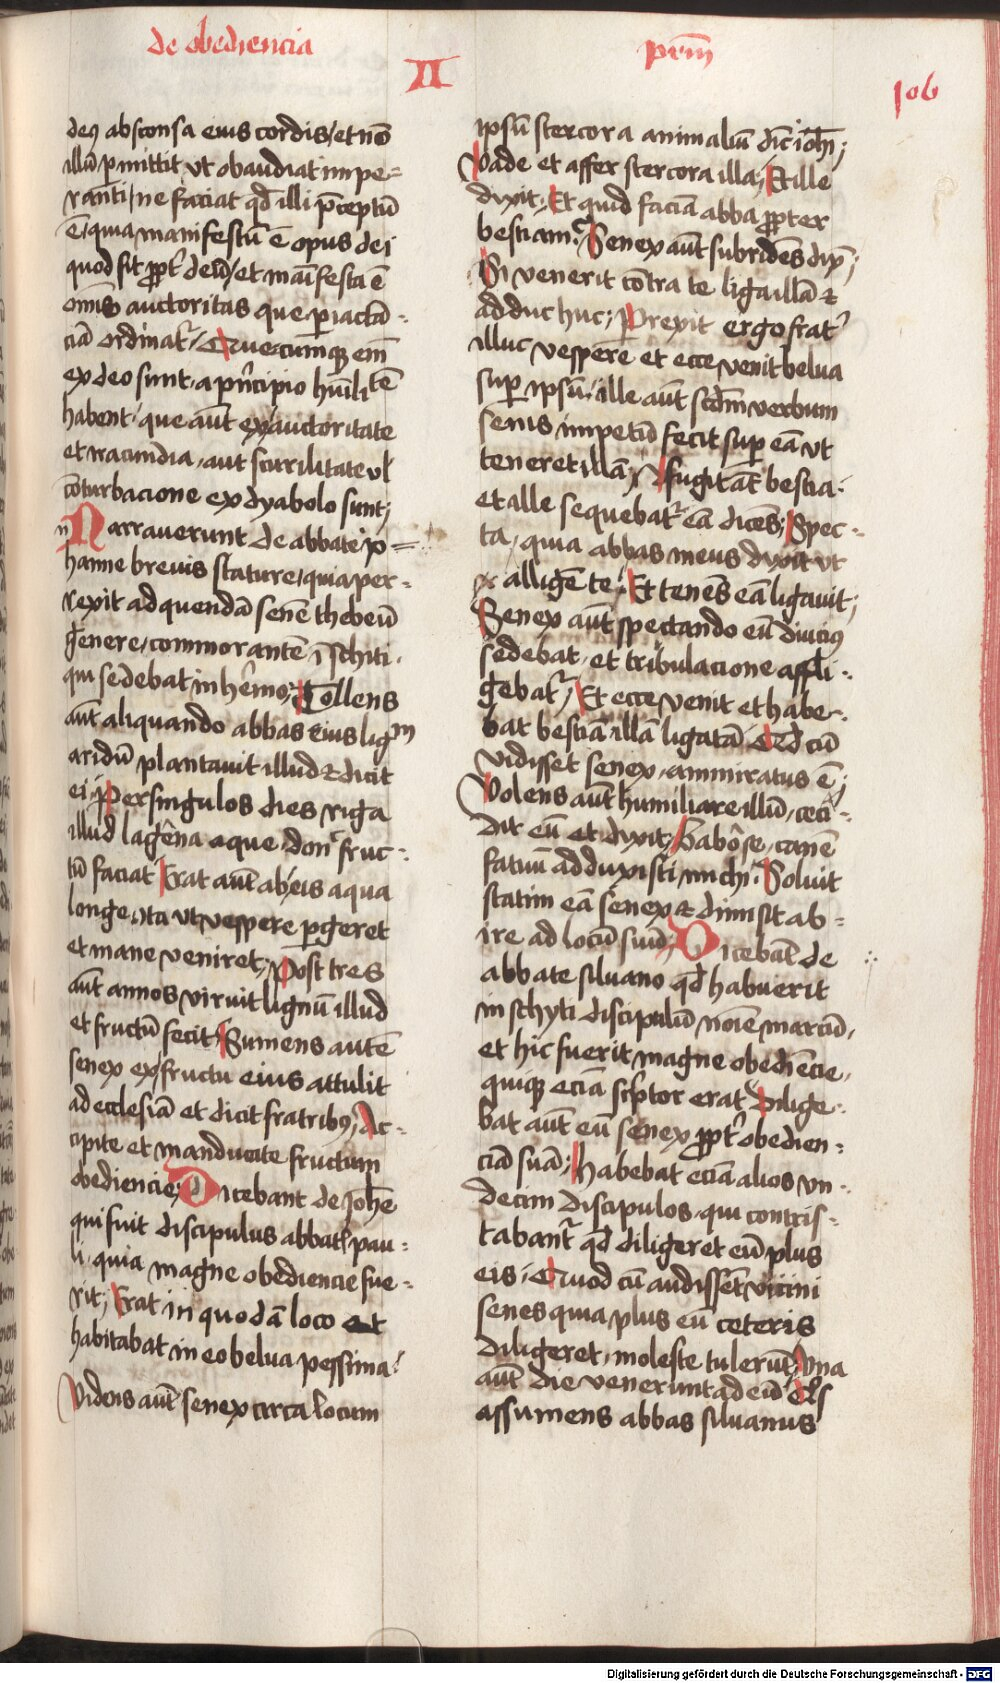 de obediencia
II
prīm
106
deꝰ absconsa eius cordis / et nō
illū ꝑmittit vt obaudiat impe=
ranti / ne faciat qd̄ illi p̄ceptū
ē / quia manifestū ē opus dei
quod fit ꝓpt̓ deū / et māifesta ē
omīs auctoritas que ꝑ iactā-
ciā ordinat᷑ / Quecumqꝫ em̄
ex deo sunt, a pͥncipio hūilitē
habent / que aūt ex auctoritate
et iracundia, aut scurilitate vl̓
cōturbacione ex dyabolo sunt;
Narrauerunt de abbate jo=
hanne breuis stature, quia per-
rexit ad quendā senē thebeū
genere, commorantē ī schiti.
qui sedebat in hêmo; Tollens
aūt aliquando abbas eius ligᵐ
aridū plantauit illud et dicit
ei; Per singulos dies riga
illud lagêna aque, don̄ fruc-
tū faciat Erat aūt ab eis aqua
longe, ita vt vespere ꝑgeret
et mane veniret; Post tres
aūt annos viruit lignū illud
et fructū fecit Sumens autē
senex ex fructu eius attulit
ad ecclesiā et dicit fratribꝰ, Ac-
cipite et manducate fructum
obediencie; Dicebant de Johē
qui fuit discipulus abbat̓ pau-
li, quia magne obediencie fue-
rit; Erat in quodā loco et
habitabat in eo belua pessima;
Videns aūt senex circa locum
ipsū stercora animaliū dīc ioh̄i;
Vade et affer stercora illa; Et ille
dixit; Et quid faciā abba ꝓpter
bestiam? Senex aūt subridēs dix̄;
Si venerit cōtra te liga illā et
adduc huc; Perexit ergo frat̓
illuc vespere et ecce venit belua
suꝑ ipsū; ille aūt scd̄m verbum
senis impetū fecit suꝑ eā vt
teneret illā; Et fugit āt bestia.
et alle sequebat᷑ eā dicēs; Spec-
ta, quia abbas meus dixit vt
alligē te; Et tenēs eā ligauit;
Senex aūt spectando eū diuciꝰ
sedebat, et tribulacione affli-
gebat᷑; Et ecce venit et habe-
bat bestiā illā ligatā Qd̄ cū
vidisset senex, ammiratus ē;
Volens aūt humiliare illū, ceci-
dit eū et dixit; Babôse, canē
fatuū adduxisti michi? Soluit
statim eā senex et dimisit ab-
ire ad locū suū; Dicebāt de
abbate siluano qd̄ habuerit
in schyti discipulū noīe marcū,
et hic fuerit magne obediēcie,
quiqꝫ eciā scͥptor erat Dilige-
bat aūt eū senex ꝓpt̓ obedien-
ciā suā; Habebat eciā alios vn-
decim discipulos, qui contris-
tabant᷑ qd̄ diligeret eū plus
eis; Quod cū audissēt vicini
senes quia plus eū ceteris
diligeret, moleste tulerūt; Vna
aūt die venerunt ad eū
assumens abbas siluanus
Digitalisierung gefördert durch die Deutsche Forschungsgemeinschaft - DFG